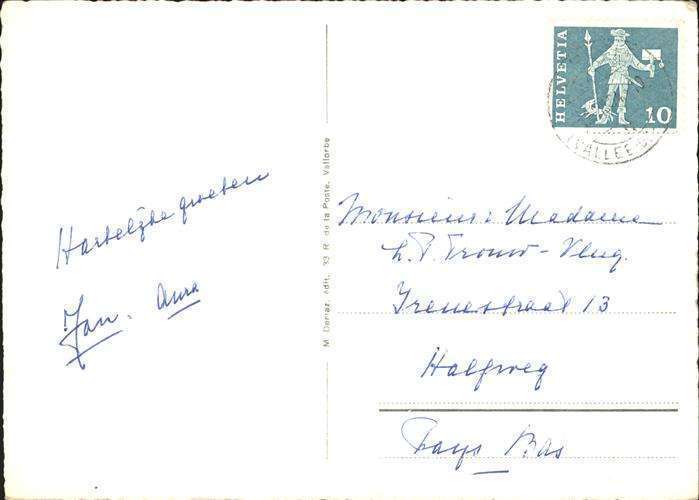 Hartelijke groeten
Jan. Anna
M. Deriaz, édit., 33 R. de la Poste, Vallorbe
HELVETIA
10
(VALLEE
Monsieur: Madame
L. P. Tromp - Vlug.
Irenestraat 13
Halfweg
Pays Bas